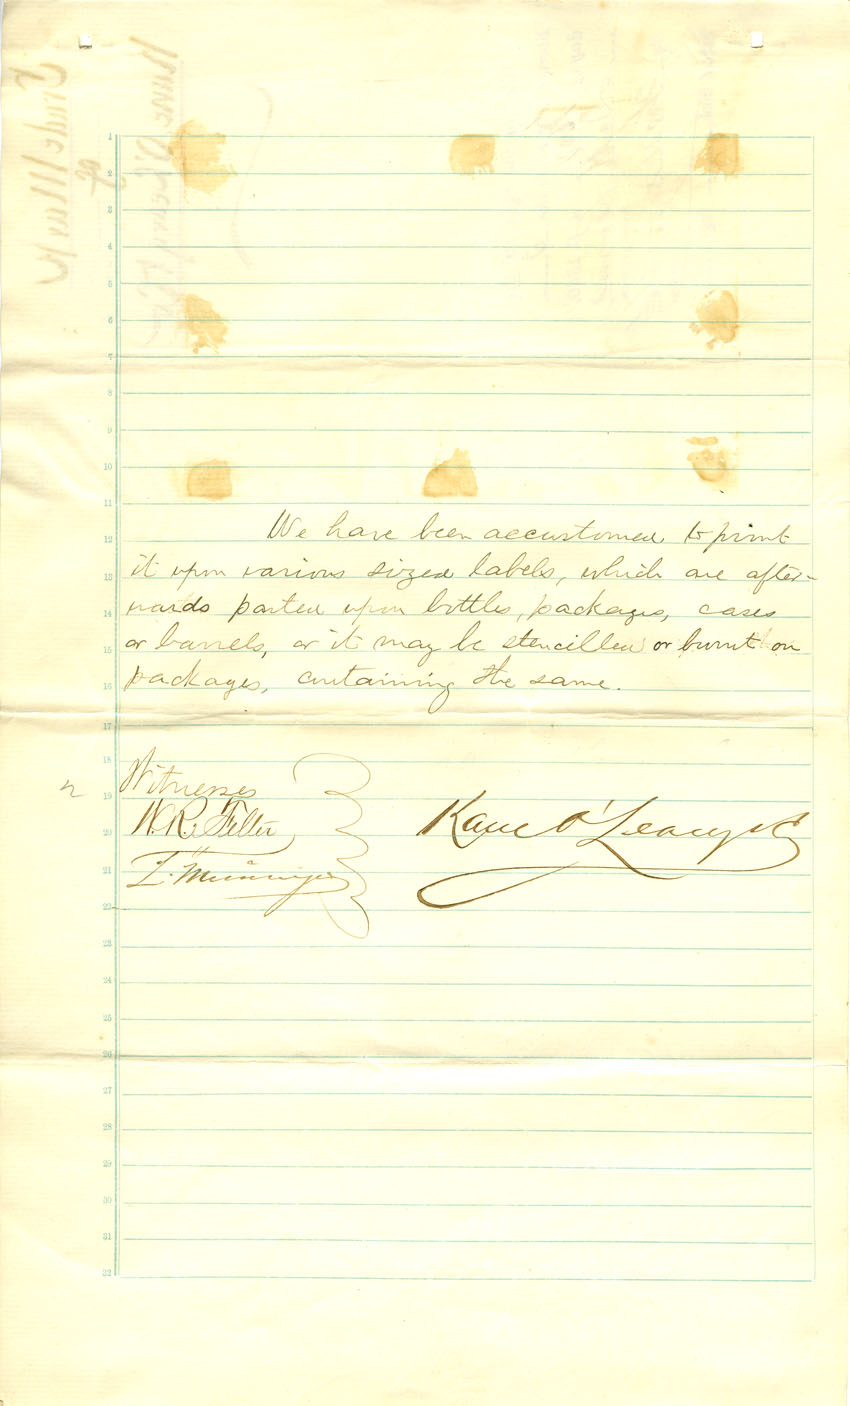 1
2
3
4
5
6
7
8
9
10
11
12
13
14
15
16
17
18
19
20
21
22
23
24
25
26
27
28
29
30
31
32
We have been accustomed to print
it upon various sized labels, which are after-
wards pasted upon bottles, packages, cases
or barrels, or it may be stencilled or burnt on
packages, containing the same.
Witnesses
W. R. Felter
Kane O'Leary & Co
Trade Mark
of